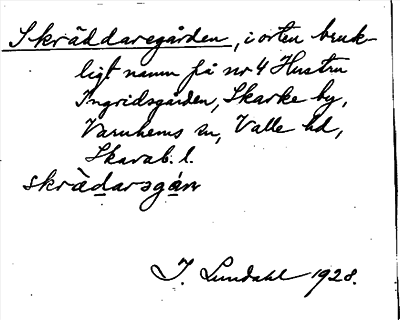 Skräddaregården, i orten bruk-
ligt namn på nr 4 Hustru
Ingridsgården, Skarke by,
Varnhems sn, Valle hd,
Skarab. l.
skrädarsgán
I. Lundahl 1928.